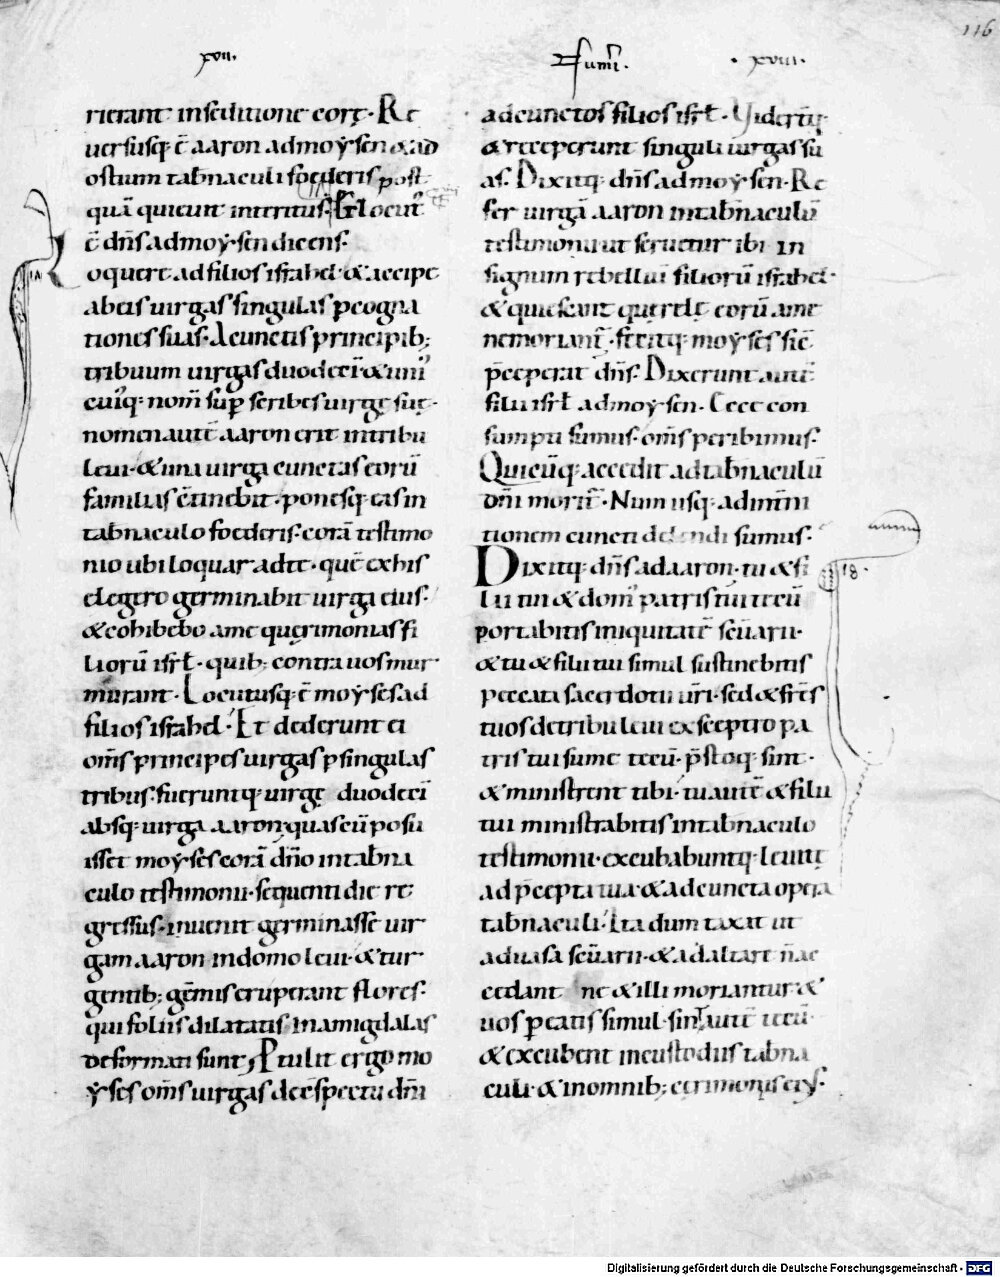 116
xvii.
Numi. · xviii.
rierant in seditione eorę. Re
uersusq; ē aaron ad moysen & ad
ostium tabnaculi foederis post
quā quieuit interitus. Et locut᷒
ē dn̄s ad moysen dicens.
Loquere ad filios israhel. & accipe
ab eis uirgas singulas p cogna
tiones suas. A cunctis principib;
tribuum uirgas duodeci. & uni᷒
cui᷒q; nom̄ sup scribes uirgę suę.
nomen autē aaron erit in tribu
leui. & una uirga cunctas eorū
familias c̄tinebit. ponesq; eas in
tabnaculo foederis. corā testimo
nio ubi loquar ad te. quē ex his
elegero germinabit uirga eius.
& cohibebo a me querimonias fi
liorū isrł. quib; contra uos mur
murant. Locutusq; ē moyses ad
filios israhel. Et dederunt ei
om̄s principes uirgas p singulas
tribus. fueruntq; uirgę duodeci
absq; uirga aaron. quas cū posu
isset moyses corā dn̄o in tabna
culo testimonii. sequenti die re
gressus. inuenit germinasse uir
gam aaron in domo leui. & tur
gentib; gem̄is eruperant flores.
qui foliis dilatatis in amigdalas
deformati sunt. Ptulit ergo mo
yses om̄s uirgas de cspectu dn̄i
ad cunctos filios isrł. Videruntq;
& receperunt singuli uirgas su
as. Dixitq; dn̄s ad moysen. Re
fer uirgā aaron in tabnaculū
testimonii ut seruetur ibi in
signum rebelliū filiorū israhel.
& quiescant querelę eorū a me
ne moriant᷒. fecitq; moyses sic̄
p̄ceperat dn̄s. Dixerunt autē
filii isrł ad moysen. Ecce con
sumpti sumus. om̄s peribimus.
Quicūq; accedit ad tabnaculū
dn̄i morit᷒. Num usq; ad intn̄i
tionem cuncti delendi sumus.
Dixitq; dn̄s ad aaron. tu & fi
18.
lii tui & dom᷒ patris tui tecū
portabitis iniquitatē sc̄uarii.
& tu & filii tui simul sustinebitis
peccata sacerdotii ur̄i. sed & fr̄es
tuos de tribu leui & sceptro pa
tris tui sume tecū. p̄stoq; sint.
& ministrent tibi. tu autē & filii
tui ministrabitis in tabnaculo
testimonii. excubabuntq; leuitę
ad p̄cepta tua. & ad cuncta opera
tabnaculi. Ita dum taxat ut
ad uasa sc̄uarii. & ad altare n̄ ac
cedant ne & illi moriantur &
uos pereatis simul. sint autē tecū
& excubent in custodiis tabna
culi. & in omnib; cerimoniis ei᷒.
Digitalisierung gefördert durch die Deutsche Forschungsgemeinschaft - DFG